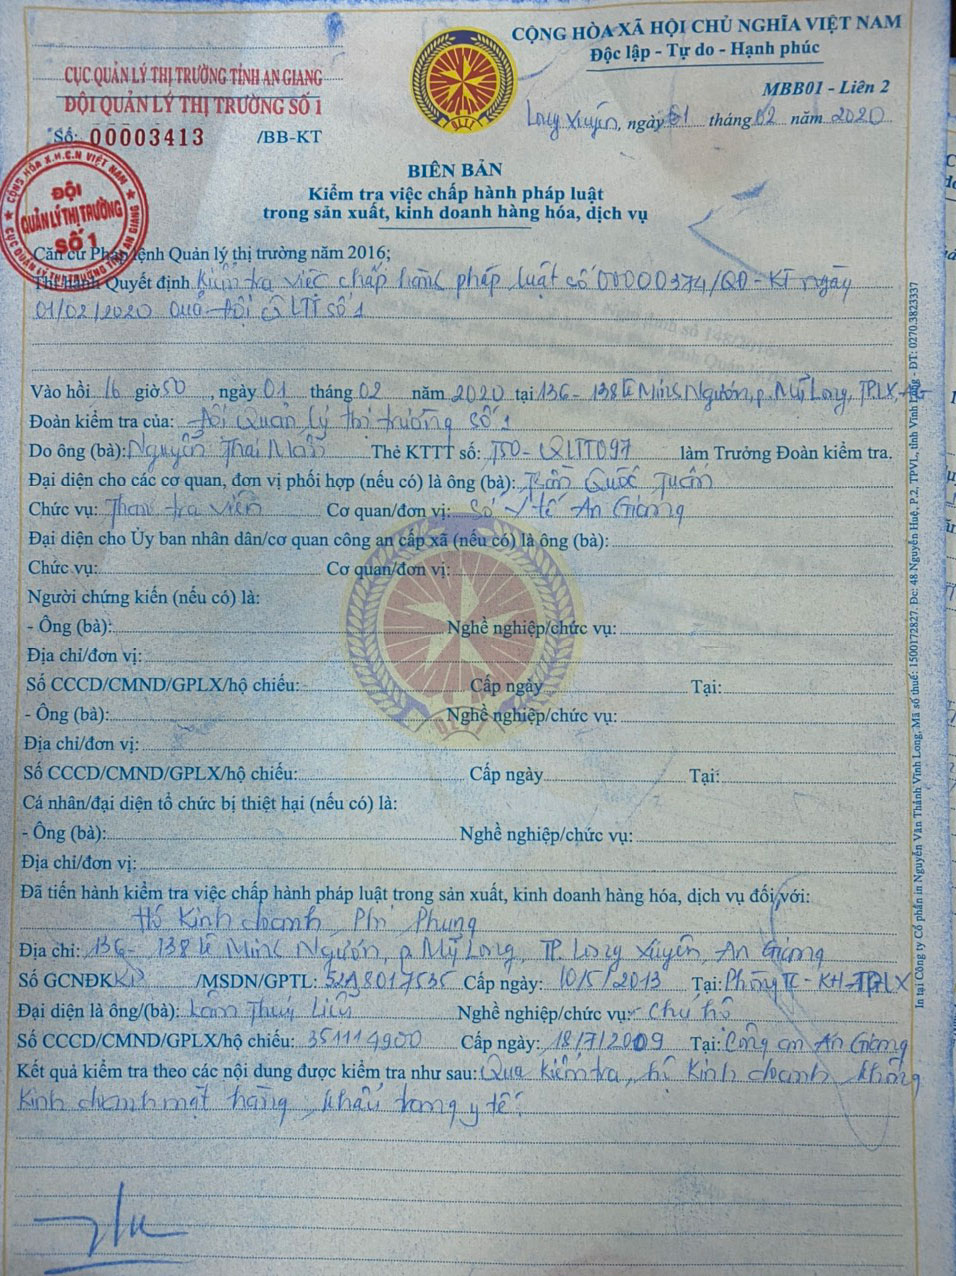 CỘNG HÒA XÃ HỘI CHỦ NGHĨA VIỆT NAM
Độc lập - Tự do - Hạnh phúc
CỤC QUẢN LÝ THỊ TRƯỜNG TỈNH AN GIANG
ĐỘI QUẢN LÝ THỊ TRƯỜNG SỐ 1
Số: 00003413 /BB-KT
MBB01 - Liên 2
Long Xuyên, ngày 01 tháng 02 năm 2020
BIÊN BẢN
Kiểm tra việc chấp hành pháp luật
trong sản xuất, kinh doanh hàng hóa, dịch vụ
CỘNG HÒA X.H.C.N VIỆT NAM
ĐỘI
QUẢN LÝ THỊ TRƯỜNG
SỐ 1
CỤC QUẢN LÝ THỊ TRƯỜNG TỈNH AN GIANG
Căn cứ Pháp lệnh Quản lý thị trường năm 2016;
Thi hành Quyết định Kiểm tra việc chấp hành pháp luật số 00000374/QĐ-KT ngày
01/02/2020 của Đội QLTT số 1
Vào hồi 16 giờ 50, ngày 01 tháng 02 năm 2020 tại 136 - 138 Lê Minh Ngươn, p. Mỹ Long, TP.LX, AG
Đoàn kiểm tra của: Đội Quản Lý thị trường số 1
Do ông (bà): Nguyễn Thái Thẻ KTTT số: T50-QLTT097 làm Trưởng Đoàn kiểm tra.
Đại diện cho các cơ quan, đơn vị phối hợp (nếu có) là ông (bà): Trần Quốc Tuấn
Chức vụ: Thanh tra viên Cơ quan/đơn vị: Sở Y tế An Giang
Đại diện cho Ủy ban nhân dân/cơ quan công an cấp xã (nếu có) là ông (bà):
Chức vụ: Cơ quan/đơn vị:
Người chứng kiến (nếu có) là:
- Ông (bà): Nghề nghiệp/chức vụ:
Địa chỉ/đơn vị:
Số CCCD/CMND/GPLX/hộ chiếu: Cấp ngày Tại:
- Ông (bà): Nghề nghiệp/chức vụ:
Địa chỉ/đơn vị:
Số CCCD/CMND/GPLX/hộ chiếu: Cấp ngày Tại:
Cá nhân/đại diện tổ chức bị thiệt hại (nếu có) là:
- Ông (bà): Nghề nghiệp/chức vụ:
Địa chỉ/đơn vị:
Đã tiến hành kiểm tra việc chấp hành pháp luật trong sản xuất, kinh doanh hàng hóa, dịch vụ đối với:
Hộ Kinh doanh Phi Phụng
Địa chỉ: 136 - 138 Lê Minh Ngươn, p. Mỹ Long, TP. Long Xuyên, An Giang
Số GCNĐKKD /MSDN/GPTL: 52A8017535 Cấp ngày: 10/5/2013 Tại: Phòng TC-KH-TPLX
Đại diện là ông/(bà): Lâm Thúy Liễu Nghề nghiệp/chức vụ: Chủ hộ
Số CCCD/CMND/GPLX/hộ chiếu: 351114900 Cấp ngày: 18/7/2009 Tại: Công an An Giang
Kết quả kiểm tra theo các nội dung được kiểm tra như sau: Qua kiểm tra, hộ Kinh doanh không
kinh doanh mặt hàng khẩu trang y tế.
In tại Công ty Cổ phần in Nguyễn Văn Thảnh Vĩnh Long, Mã số thuế: 1500172827. Đc: 48 Nguyễn Huệ, P.2, TPVL, tỉnh Vĩnh Long - ĐT: 0270.3823337